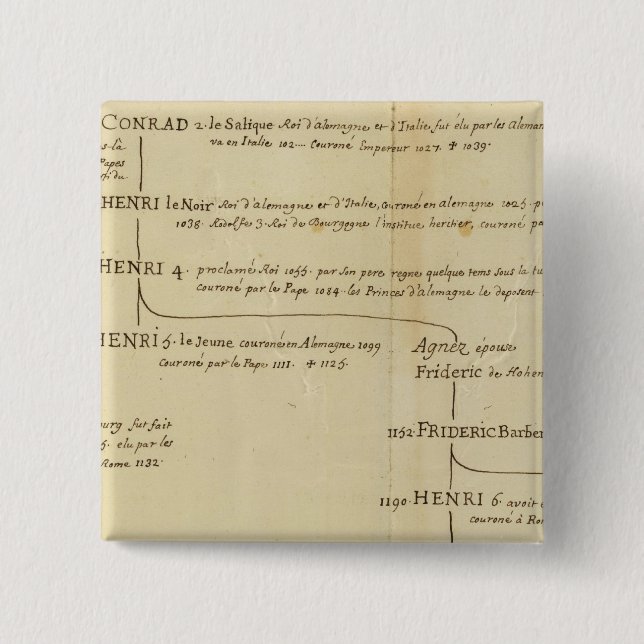 CONRAD 2. le Salique Roi d'alemagne et d'Italie, fut élu par les Aleman
va en Italie 102.... Couroné Empereur 1027. ✝ 1039.
s-là
Papes
fi du
HENRI le Noir Roi d'alemagne et d'Italie, couroné en alemagne 1025. p
1038. Rodolfe 3. Roi de Bourgogne l'institue heritier, couroné pa
HENRI 4. proclamé Roi 1055. par son pere regne quelque tems sous la tu
couroné par le Pape 1084. les Princes d'Alemagne le deposent
HENRI 5. le Jeune couroné en Alemagne 1099
couroné par le Pape 1111. ✝ 1125.
Agnez épouse
Frideric de Hohen
ourg fut fait
5. elu par les
Rome 1132.
1152. FRIDERIC Barber
1190. HENRI 6. avoit é
couroné à Ro